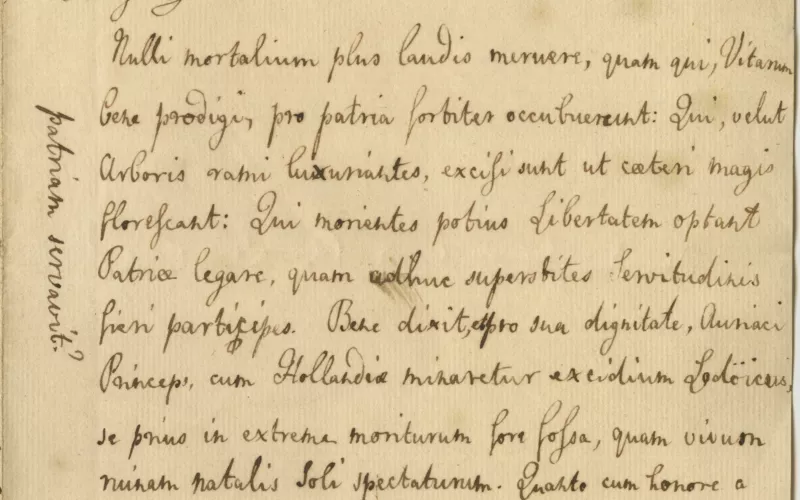 Nulli mortalium plus laudis meruere, quam qui, Vitarum
bene prodigi, pro patria fortiter occubuerunt: Qui, velut
Arboris rami luxuriantes, excisi sunt ut cæteri magis
florescant: Qui morientes potius Libertatem optant
Patriæ legare, quam adhuc superstites Servitudinis
fieri participes. Bene dixit, et pro sua dignitate, Auriaci
Princeps, cum Hollandiæ minaretur excidium Lodöicus,
se prius in extrema moriturum fore fossa, quam vivum
ruinam natalis Soli spectaturum. Quanto cum honore a
patriam servavit?